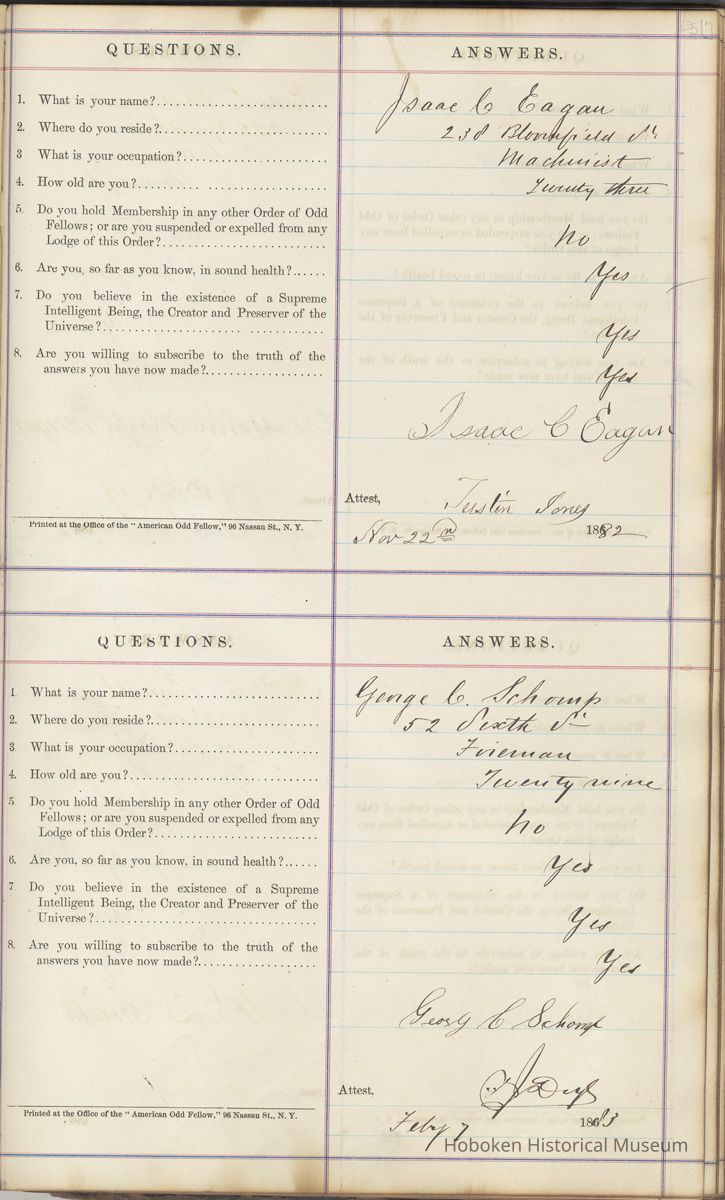 QUESTIONS. ANSWERS.
1. What is your name? Isaac C Eagan
2. Where do you reside? 238 Bloomfield St
3 What is your occupation? Machinist
4. How old are you? Twenty three
5. Do you hold Membership in any other Order of Odd
Fellows; or are you suspended or expelled from any
Lodge of this Order? No
6. Are you, so far as you know, in sound health? Yes
7. Do you believe in the existence of a Supreme
Intelligent Being, the Creator and Preserver of the
Universe? Yes
8. Are you willing to subscribe to the truth of the
answers you have now made? Yes
Isaac C Eagan
Attest, Justin Jones
Printed at the Office of the "American Odd Fellow," 96 Nassau St., N. Y.
Nov 22nd 1882
QUESTIONS. ANSWERS.
1 What is your name? George C. Schomp
2. Where do you reside? 52 Sixth St
3. What is your occupation? Foreman
4. How old are you? Twenty nine
5 Do you hold Membership in any other Order of Odd
Fellows; or are you suspended or expelled from any
Lodge of this Order? No
6. Are you, so far as you know, in sound health? Yes
7 Do you believe in the existence of a Supreme
Intelligent Being, the Creator and Preserver of the
Universe? Yes
8. Are you willing to subscribe to the truth of the
answers you have now made? Yes
Georg C Schomp
Attest,
Printed at the Office of the "American Odd Fellow," 96 Nassau St., N. Y.
Feby 7 1883
Hoboken Historical Museum